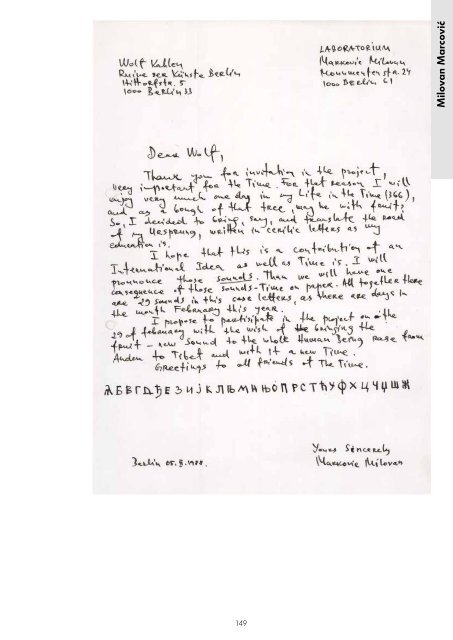 Milovan Marcović
Wolf Kahlen
Ruine der Künste Berlin
Hittorfstr. 5
1000 Berlin 33
LABORATORIUM
Marković Milovan
Monumentenstr. 24
1000 Berlin 61
Dear Wolf,
Thank you for invitation in the project,
very important for the Time. For that reason I will
enjoy very much one day in my Life in the Time (366),
and as a bough of that tree, may be with fruits,
So, I decided to bring, say, and translate the road
of my Ursprung, written in cerilic letters as my
education is.
I hope that this is a contribution of an
International Idea as well as Time is. I will
pronounce those sounds. Than we will have one
consequence of those sounds-Time on paper. All together there
are 29 sounds in this case letters, as there are days in
the month Febanary this year.
I propose to partisipate in the project on the
29 of february with the wish of bringing the
fruit – new Sound to the whole Human Being rase from
Anden to Tibet and with It a new Time.
Greetings to all friends of The Time.
АБВГДЂЕЗИЈКЛЉМНЊОПРСТЋУФХЦЧЏШЖ
Yours Sincerely
Berlin 05. 1988.
Marković Milovan
149